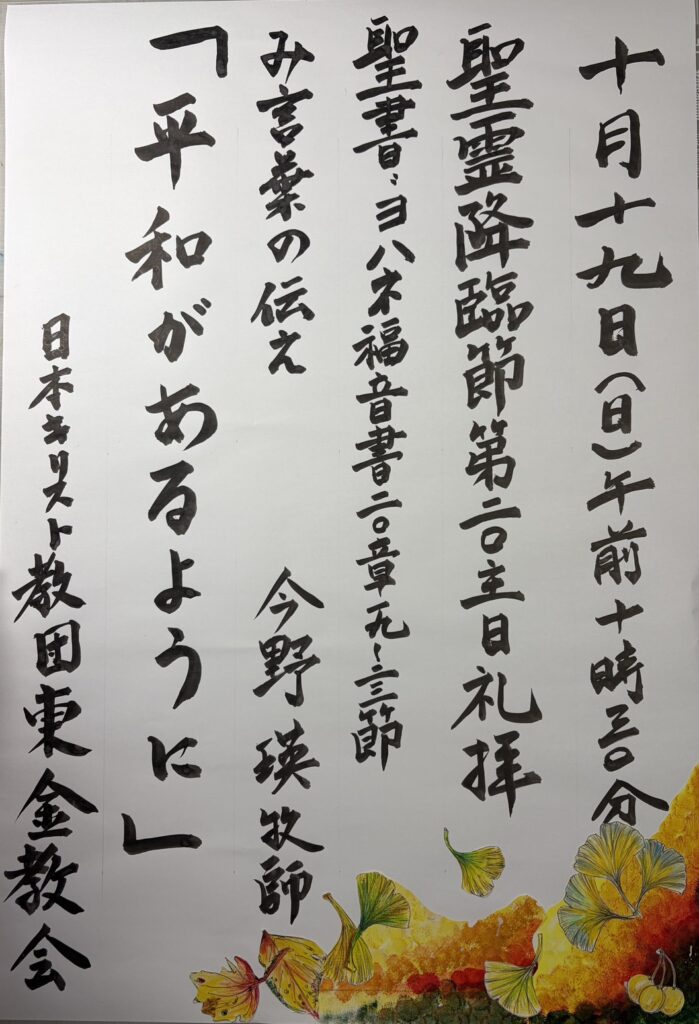 十月十九日(日)午前十時三〇分
聖霊降臨節第二〇主日礼拝
聖書:ヨハネ福音書二〇章一九~二三節
み言葉の伝え 今野瑛牧師
「平和があるように」
日本キリスト教団東金教会